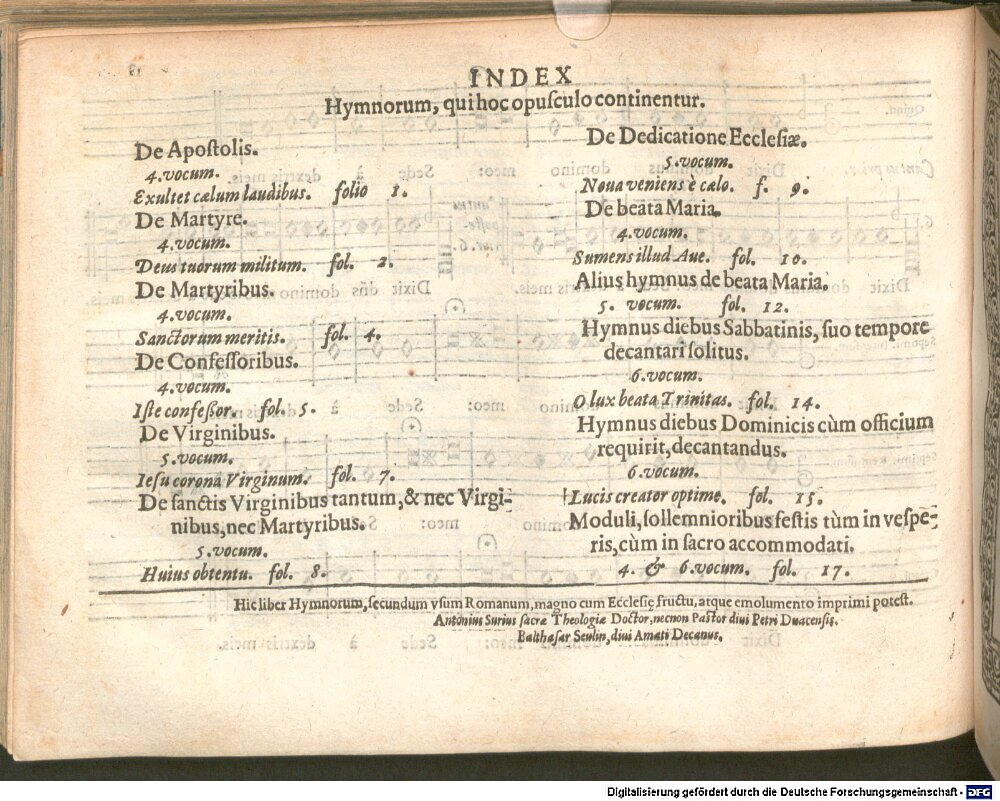 INDEX
Hymnorum, qui hoc opusculo continentur.
De Apostolis.
4.vocum.
Exultet cælum laudibus. folio 1.
De Martyre.
4.vocum.
Deus tuorum militum. fol. 2.
De Martyribus.
4.vocum.
Sanctorum meritis. fol. 4.
De Confessoribus.
4.vocum.
Iste confeßor. fol. 5.
De Virginibus.
5.vocum.
Iesu corona Virginum. fol. 7.
De sanctis Virginibus tantum, & nec Virgi-
nibus, nec Martyribus.
5.vocum.
Huius obtentu. fol. 8.
De Dedicatione Ecclesiæ.
5.vocum.
Noua veniens è cælo. f. 9.
De beata Maria.
4.vocum.
Sumens illud Aue. fol. 10.
Alius hymnus de beata Maria.
5. vocum. fol. 12.
Hymnus diebus Sabbatinis, suo tempore
decantari solitus.
6.vocum.
O lux beata Trinitas. fol. 14.
Hymnus diebus Dominicis cùm officium
requirit, decantandus.
6.vocum.
Lucis creator optime. fol. 15.
Moduli, sollemnioribus festis tùm in vespe-
ris, cùm in sacro accommodati.
4. & 6.vocum. fol. 17.
Hic liber Hymnorum, secundum vsum Romanum, magno cum Ecclesię fructu, atque emolumento imprimi potest.
Antonius Surius sacræ Theologiæ Doctor, necnon Pastor diui Petri Duacensis.
Balthasar Seulin, diui Amati Decanus.
Digitalisierung gefördert durch die Deutsche Forschungsgemeinschaft - DFG